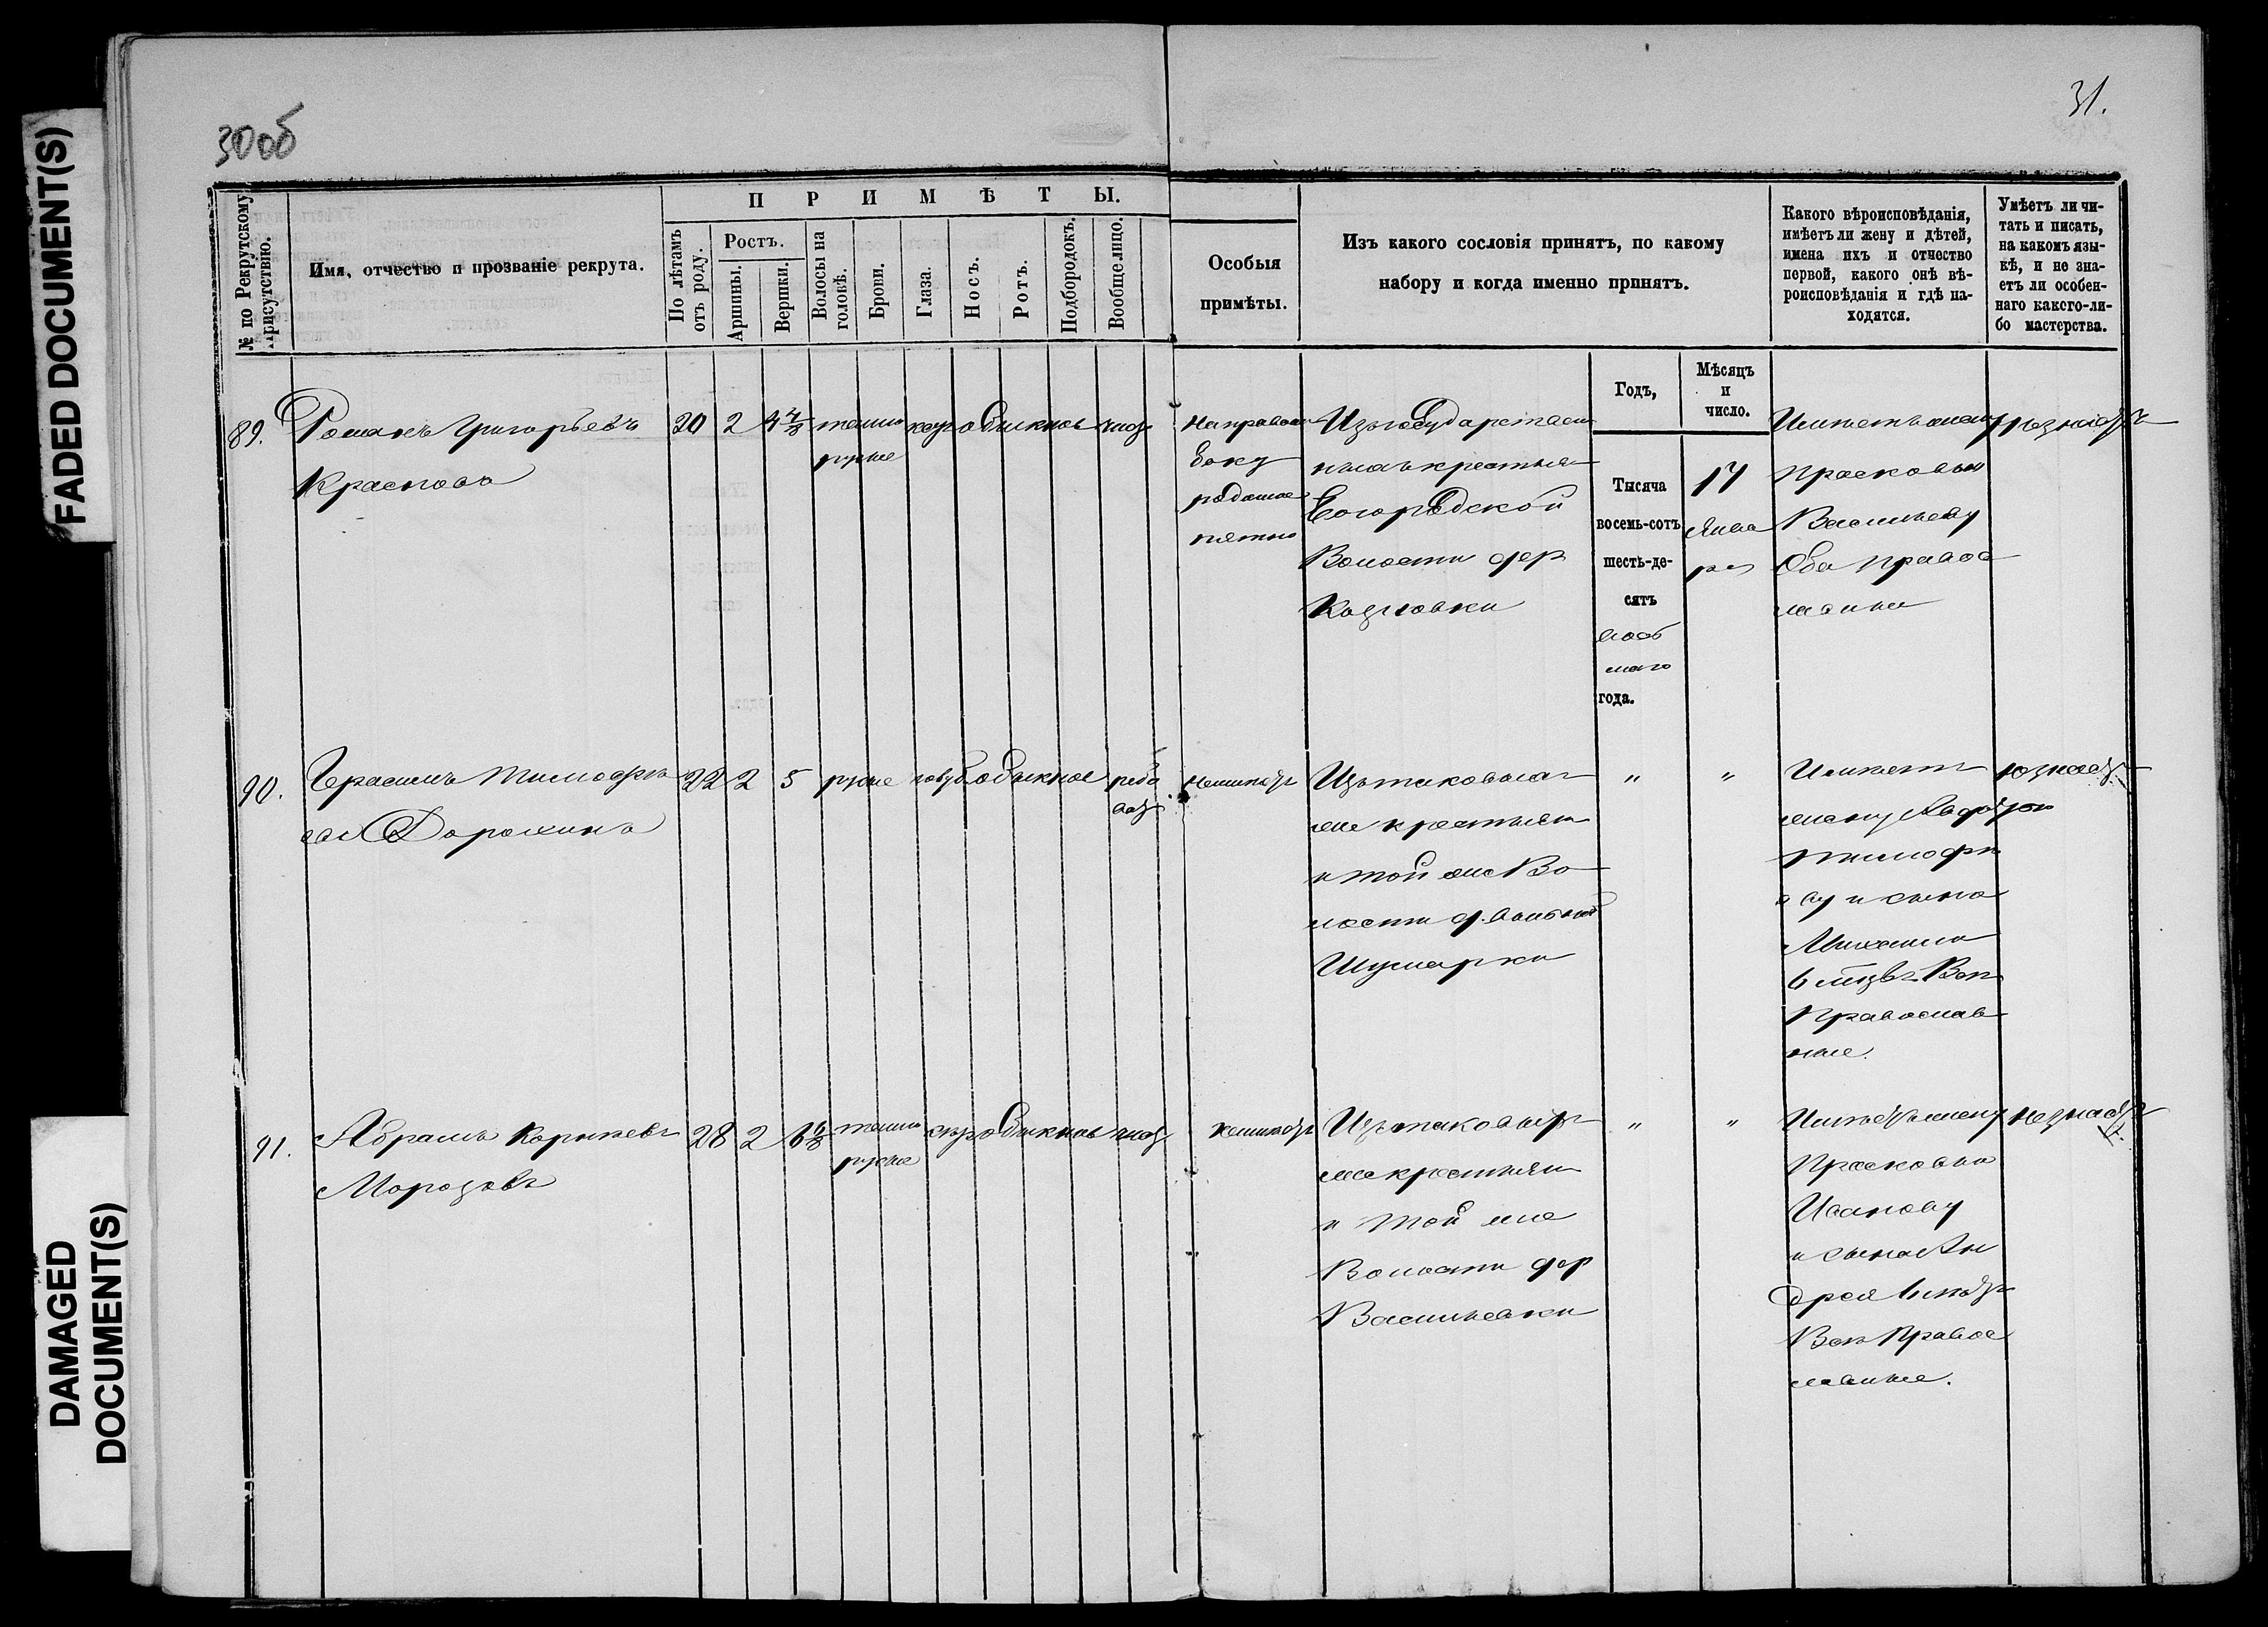 FADED DOCUMENT(S)
DAMAGED
DOCUMENT(S)
30об
31.
№ по Рекрутскому
Присутствію.
Имя, отчество и прозваніе рекрута.
ПРИМѢТЫ.
По лѣтамъ
отъ роду.
Ростъ.
Аршины.
Вершки.
Волосы на
головѣ.
Брови.
Глаза.
Носъ.
Ротъ.
Подбородокъ.
Вообще лицо.
Особыя
примѣты.
Изъ какого сословія принятъ, по какому
набору и когда именно принятъ.
Какого вѣроисповѣданія,
имѣетъ ли жену и дѣтей,
имена ихъ и отчество
первой, какого онѣ вѣ-
роисповѣданія и гдѣ на-
ходятся.
Умѣетъ ли чи-
тать и писать,
на какомъ язы-
кѣ, и не зна-
етъ ли особен-
наго какого-ли-
бо мастерства.
Годъ,
Мѣсяцъ
и
число.
89.
Романъ Григорьевъ
Красновъ
20 2 4 4/8
темно
русые
обыкнов
чист
на правом
боку
родимое
пятно
Изъ государствен
ныхъ крестьян
Богородской
Волости дер
Козловки
Тысяча
восемь-сотъ
шесть-де-
сятъ
вось
маго
года.
17
Янва
ря
Имѣетъ жену
Прасковью
Васильеву
Оба правос
лавные
90.
Герасимъ Тимофѣе
въ Дорохинъ
22 2 5 русые голуб обыкнов рябо
ват
неимѣетъ
Изъ таковыхъ
же крестьян
и той же Во
лости д. Вольной
Шумарки
" "
Имѣетъ
жену
Тимофѣ
еву и сына
Михаила
6 мѣсяцъ Всѣ
Православ
ные.
незнаетъ
91.
Абрамъ Корнѣевъ
Морозовъ
28 2 6 6/8
темно
русые
сѣр обыкнов чист
неимѣетъ
Изъ таковыхъ
же крестьян
и той же
Волости дер
Васильевки
" "
Имѣетъ жену
Прасковью
Иванову
и сына Ан
дрея
Всѣ Правос
лавные.
незнаетъ